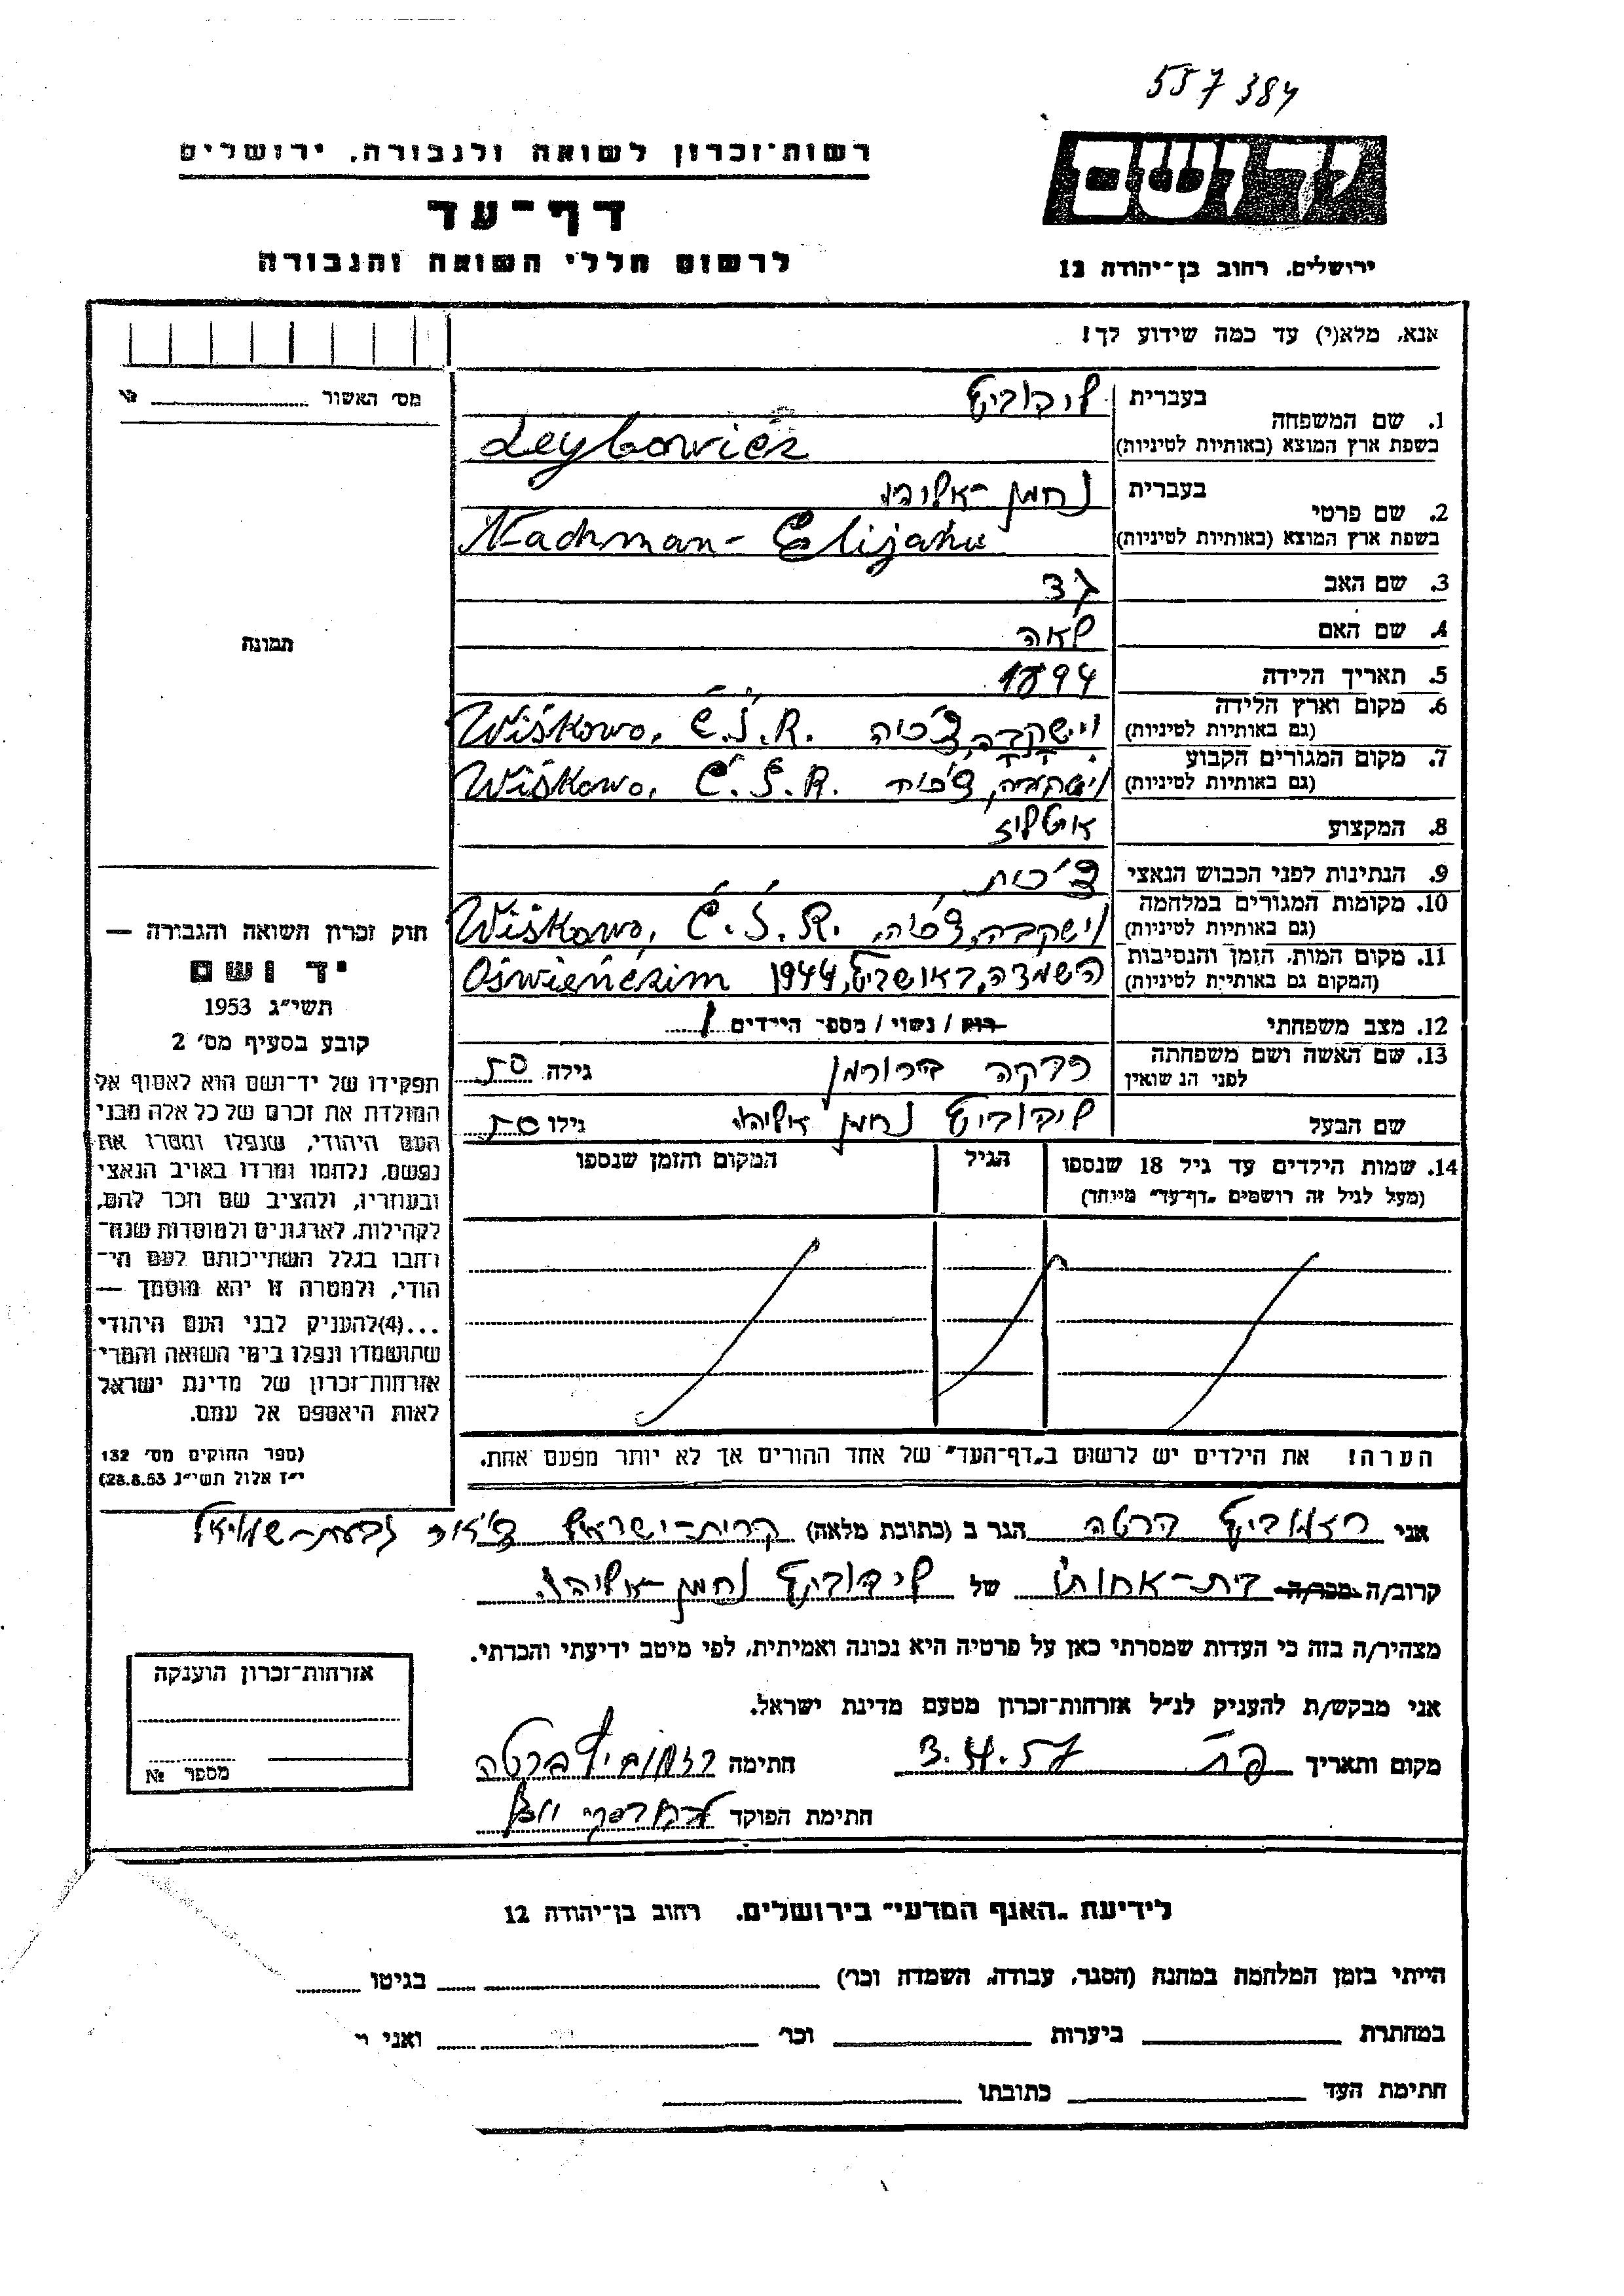 557 384
רשות־זכרון לשואה ולגבורה, ירושלים
יד ושם
דף־עד
לרשום חללי השואה והגבורה
ירושלים, רחוב בן־יהודה 12
אנא, מלא(י) עד כמה שידוע לך!
מס' האשור №
1. שם המשפחה
בעברית ליבוביץ
בשפת ארץ המוצא (באותיות לטיניות) Leybowicz
2. שם פרטי
בעברית נחמן-אליהו
בשפת ארץ המוצא (באותיות לטיניות) Nachman- Elijahu
3. שם האב גד
4. שם האם לאה
5. תאריך הלידה 1894
6. מקום וארץ הלידה
(גם באותיות לטיניות) וישקבה, צ'כיה Wiśkowo, Č.S.R.
7. מקום המגורים הקבוע
(גם באותיות לטיניות) וישקובה, צ'כיה Wiśkowo, Č.S.R.
8. המקצוע אטליז
9. הנתינות לפני הכבוש הנאצי צ'כית
10. מקומות המגורים במלחמה
(גם באותיות לטיניות) וישקבה, צ'כיה, Wiśkowo, Č.S.R.
11. מקום המות, הזמן והנסיבות
(המקום גם באותיות לטיניות) השמדה, באושביץ, 1944 Oświenczim
12. מצב משפחתי רווק / נשוי / מספר הילדים 1
13. שם האשה ושם משפחתה
לפני הנשואין רבקה גילה 50
שם הבעל ליבוביץ נחמן אליהו גילו 50
14. שמות הילדים עד גיל 18 שנספו
(מעל לגיל זה רושמים "דף־עד" מיוחד)
הגיל
המקום והזמן שנספו
הערה! את הילדים יש לרשום ב"דף־העד" של אחד ההורים אך לא יותר מפעם אחת.
תמונה
חוק זכרון השואה והגבורה —
יד ושם
תשי"ג 1953
קובע בסעיף מס' 2
תפקידו של יד־ושם הוא לאסוף אל
המולדת את זכרם של כל אלה מבני
העם היהודי, שנפלו ומסרו את
נפשם, נלחמו ומרדו באויב הנאצי
ובעוזריו, ולהציב שם וזכר להם,
לקהילות, לארגונים ולמוסדות שנח־
רבו בגלל השתייכותם לעם הי־
הודי, ולמטרה זו יהא מוסמך —
...(4)להעניק לבני העם היהודי
שהושמדו ונפלו בימי השואה והמרי
אזרחות־זכרון של מדינת ישראל
לאות היאספם אל עמם.
(ספר החוקים מס' 132
י"ז אלול תשי"ג 28.8.53)
אני ברטה הגר ב (כתובת מלאה) קרית-ישראל גבעת-שמואל
קרוב/ה מכר/ה בת-אחותו של ליבוביץ נחמן-אליהו
מצהיר/ה בזה כי העדות שמסרתי כאן על פרטיה היא נכונה ואמיתית, לפי מיטב ידיעתי והכרתי.
אני מבקש/ת להעניק לנ"ל אזרחות־זכרון מטעם מדינת ישראל.
מקום ותאריך 3.4.57 חתימה ברטה
חתימת הפוקד
אזרחות־זכרון הוענקה
מספר №
לידיעת "האגף המדעי" בירושלים, רחוב בן־יהודה 12
הייתי בזמן המלחמה במחנה (הסגר, עבודה, השמדה וכו') בגיטו
במחתרת ביערות וכו' ואני
חתימת העד כתובתו